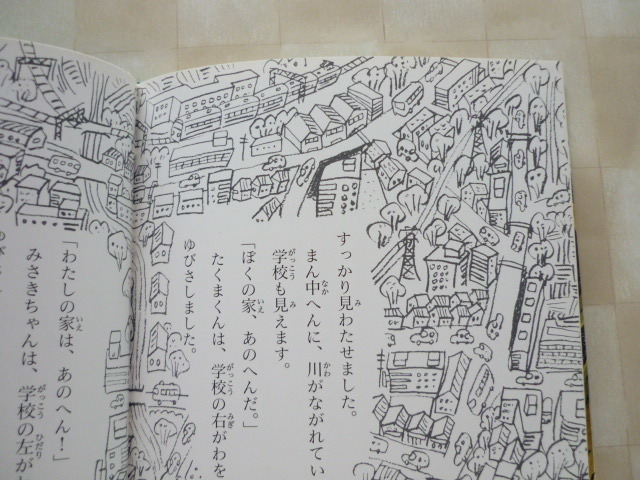 すっかり見わたせました。
まん中へんに、川がながれてい
学校も見えます。
「ぼくの家、あのへんだ。」
たくまくんは、学校の右がわを
ゆびさしました。
「わたしの家は、あのへん！」
みさきちゃんは、学校の左が